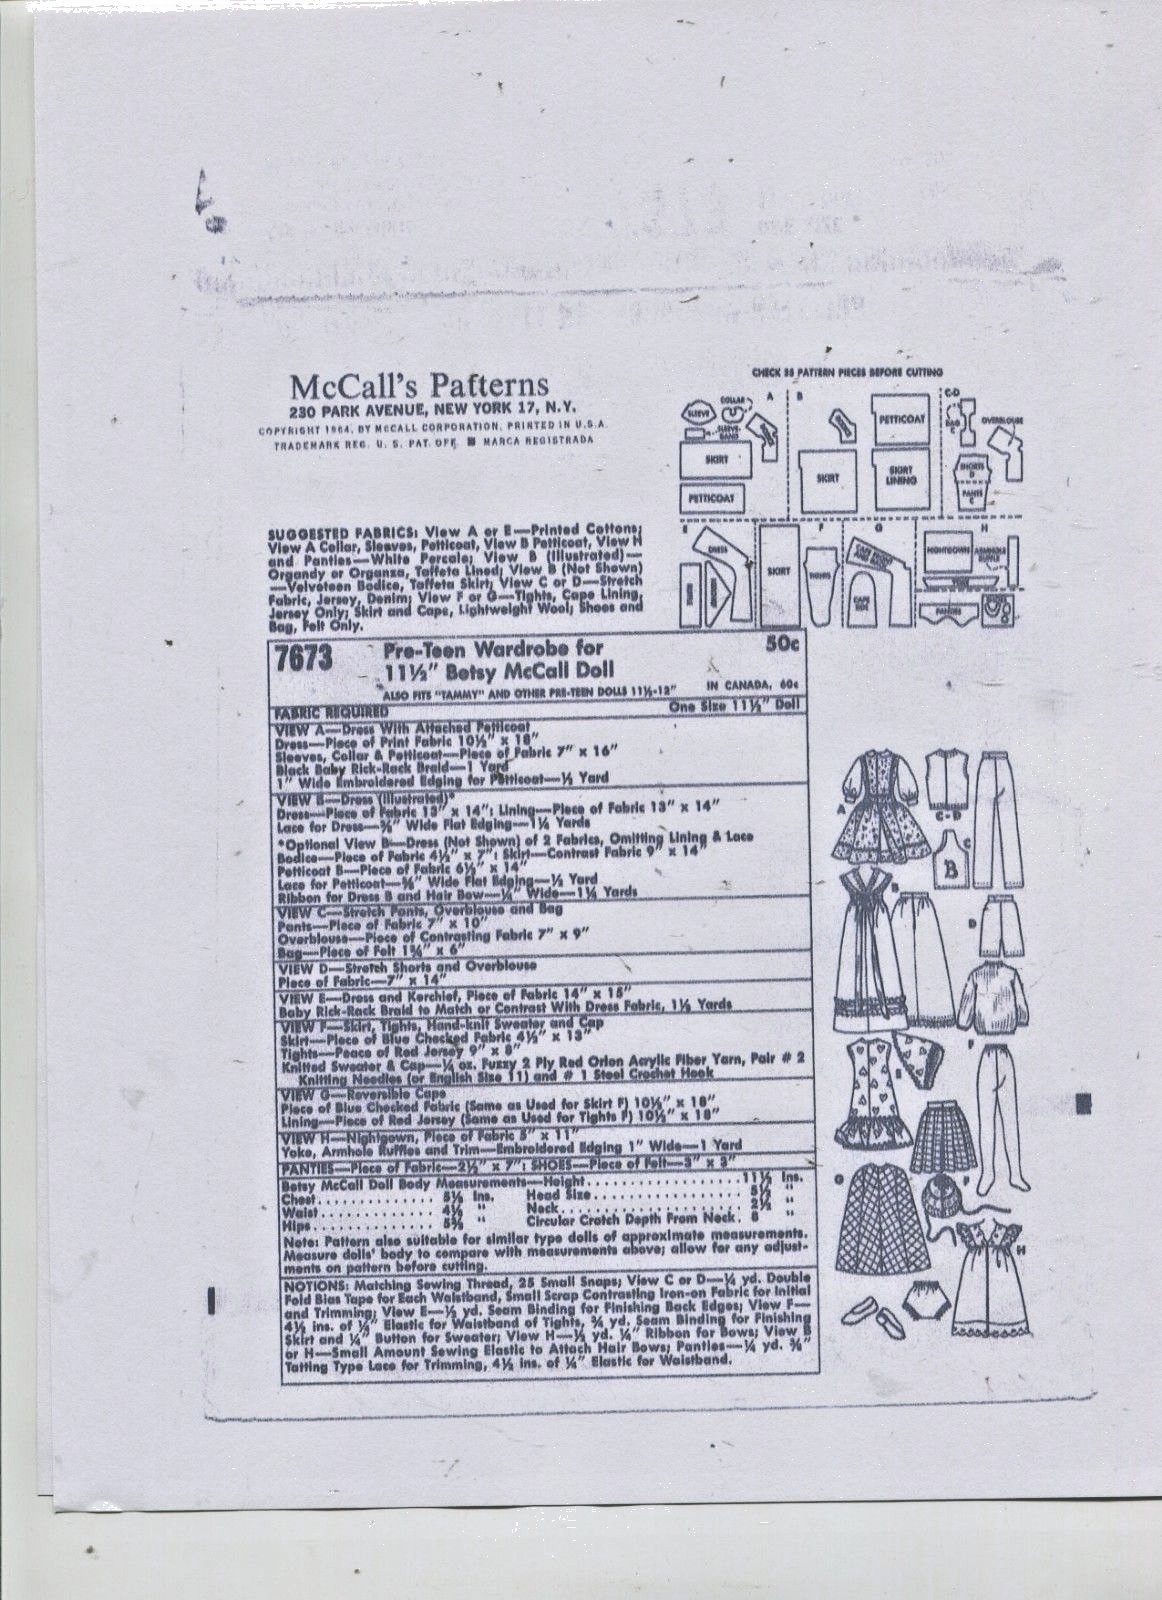 McCall's Patterns
230 PARK AVENUE, NEW YORK 17, N.Y.
COPYRIGHT 1964, BY McCALL CORPORATION, PRINTED IN U.S.A.
TRADEMARK REG. U. S. PAT. OFF. ■ MARCA REGISTRADA
CHECK 35 PATTERN PIECES BEFORE CUTTING
A
B
C-D
SLEEVE
COLLAR
SLEEVE-BAND
SKIRT
PETTICOAT
PETTICOAT
SKIRT
SKIRT LINING
BAG C
OVERBLOUSE
SHORTS D
PANTS C
E
F
G
H
DRESS
SKIRT
TIGHTS
CAPE
NIGHTGOWN
ARMHOLE RUFFLE
YOKE
PANTIES
SUGGESTED FABRICS: View A or E—Printed Cottons;
View A Collar, Sleeves, Petticoat, View B Petticoat, View H
and Panties—White Percale; View B (Illustrated)—
Organdy or Organza, Taffeta Lined; View B (Not Shown)
—Velveteen Bodice, Taffeta Skirt; View C or D—Stretch
Fabric, Jersey, Denim; View F or G—Tights, Cape Lining,
Jersey Only; Skirt and Cape, Lightweight Wool; Shoes and
Bag, Felt Only.
7673 Pre-Teen Wardrobe for 50c
11½" Betsy McCall Doll
*ALSO FITS "TAMMY" AND OTHER PRE-TEEN DOLLS 11½-12" IN CANADA, 60c
FABRIC REQUIRED One Size 11½" Doll
VIEW A—Dress With Attached Petticoat
Dress—Piece of Print Fabric 10½" x 18"
Sleeves, Collar & Petticoat—Piece of Fabric 7" x 16"
Black Baby Rick-Rack Braid—1 Yard
1" Wide Embroidered Edging for Petticoat—½ Yard
VIEW B—Dress (Illustrated)*
Dress—Piece of Fabric 13" x 14"; Lining—Piece of Fabric 13" x 14"
Lace for Dress—⅝" Wide Flat Edging—1¼ Yards
*Optional View B—Dress (Not Shown) of 2 Fabrics, Omitting Lining & Lace
Bodice—Piece of Fabric 4½" x 7"; Skirt—Contrast Fabric 9" x 14"
Petticoat B—Piece of Fabric 6½" x 14"
Lace for Petticoat—⅝" Wide Flat Edging—½ Yard
Ribbon for Dress B and Hair Bow—¼" Wide—1¼ Yards
VIEW C—Stretch Pants, Overblouse and Bag
Pants—Piece of Fabric 7" x 10"
Overblouse—Piece of Contrasting Fabric 7" x 9"
Bag—Piece of Felt 1¾" x 6"
VIEW D—Stretch Shorts and Overblouse
Piece of Fabric—7" x 14"
VIEW E—Dress and Kerchief, Piece of Fabric 14" x 15"
Baby Rick-Rack Braid to Match or Contrast With Dress Fabric, 1½ Yards
VIEW F—Skirt, Tights, Hand-knit Sweater and Cap
Skirt—Piece of Blue Checked Fabric 4½" x 13"
Tights—Peace of Red Jersey 9" x 8"
Knitted Sweater & Cap—¼ oz. Fuzzy 2 Ply Red Orlon Acrylic Fiber Yarn, Pair # 2
Knitting Needles (or English Size 11) and # 1 Steel Crochet Hook
VIEW G—Reversible Cape
Piece of Blue Checked Fabric (Same as Used for Skirt F) 10½" x 18"
Lining—Piece of Red Jersey (Same as Used for Tights F) 10½" x 18"
VIEW H—Nightgown, Piece of Fabric 5" x 11"
Yoke, Armhole Ruffles and Trim—Embroidered Edging 1" Wide—1 Yard
PANTIES—Piece of Fabric—2½" x 7"; SHOES—Piece of Felt—3" x 3"
Betsy McCall Doll Body Measurements—Height 11½ Ins.
Chest 5½ Ins. Head Size 5½ "
Waist 4½ " Neck 2½ "
Hips 5¾ " Circular Crotch Depth From Neck. 8 "
Note: Pattern also suitable for similar type dolls of approximate measurements.
Measure dolls' body to compare with measurements above; allow for any adjust-
ments on pattern before cutting.
NOTIONS: Matching Sewing Thread, 25 Small Snaps; View C or D—¼ yd. Double
Fold Bias Tape for Each Waistband, Small Scrap Contrasting Iron-on Fabric for Initial
and Trimming; View E—½ yd. Seam Binding for Finishing Back Edges; View F—
4½ ins. of ½" Elastic for Waistband of Tights, ¾ yd. Seam Binding for Finishing
Skirt and ¼" Button for Sweater; View H—½ yd. ¼" Ribbon for Bows; View B
or H—Small Amount Sewing Elastic to Attach Hair Bows; Panties—¼ yd. ⅜"
Tatting Type Lace for Trimming, 4½ ins. of ¼" Elastic for Waistband.
A
C-D
C
B
B
D
F
E
G
F
H